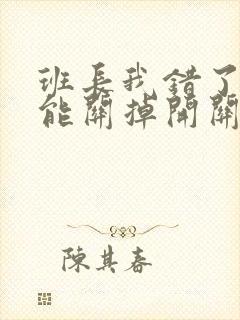 班長我錯了
能關掉開關
陳其春